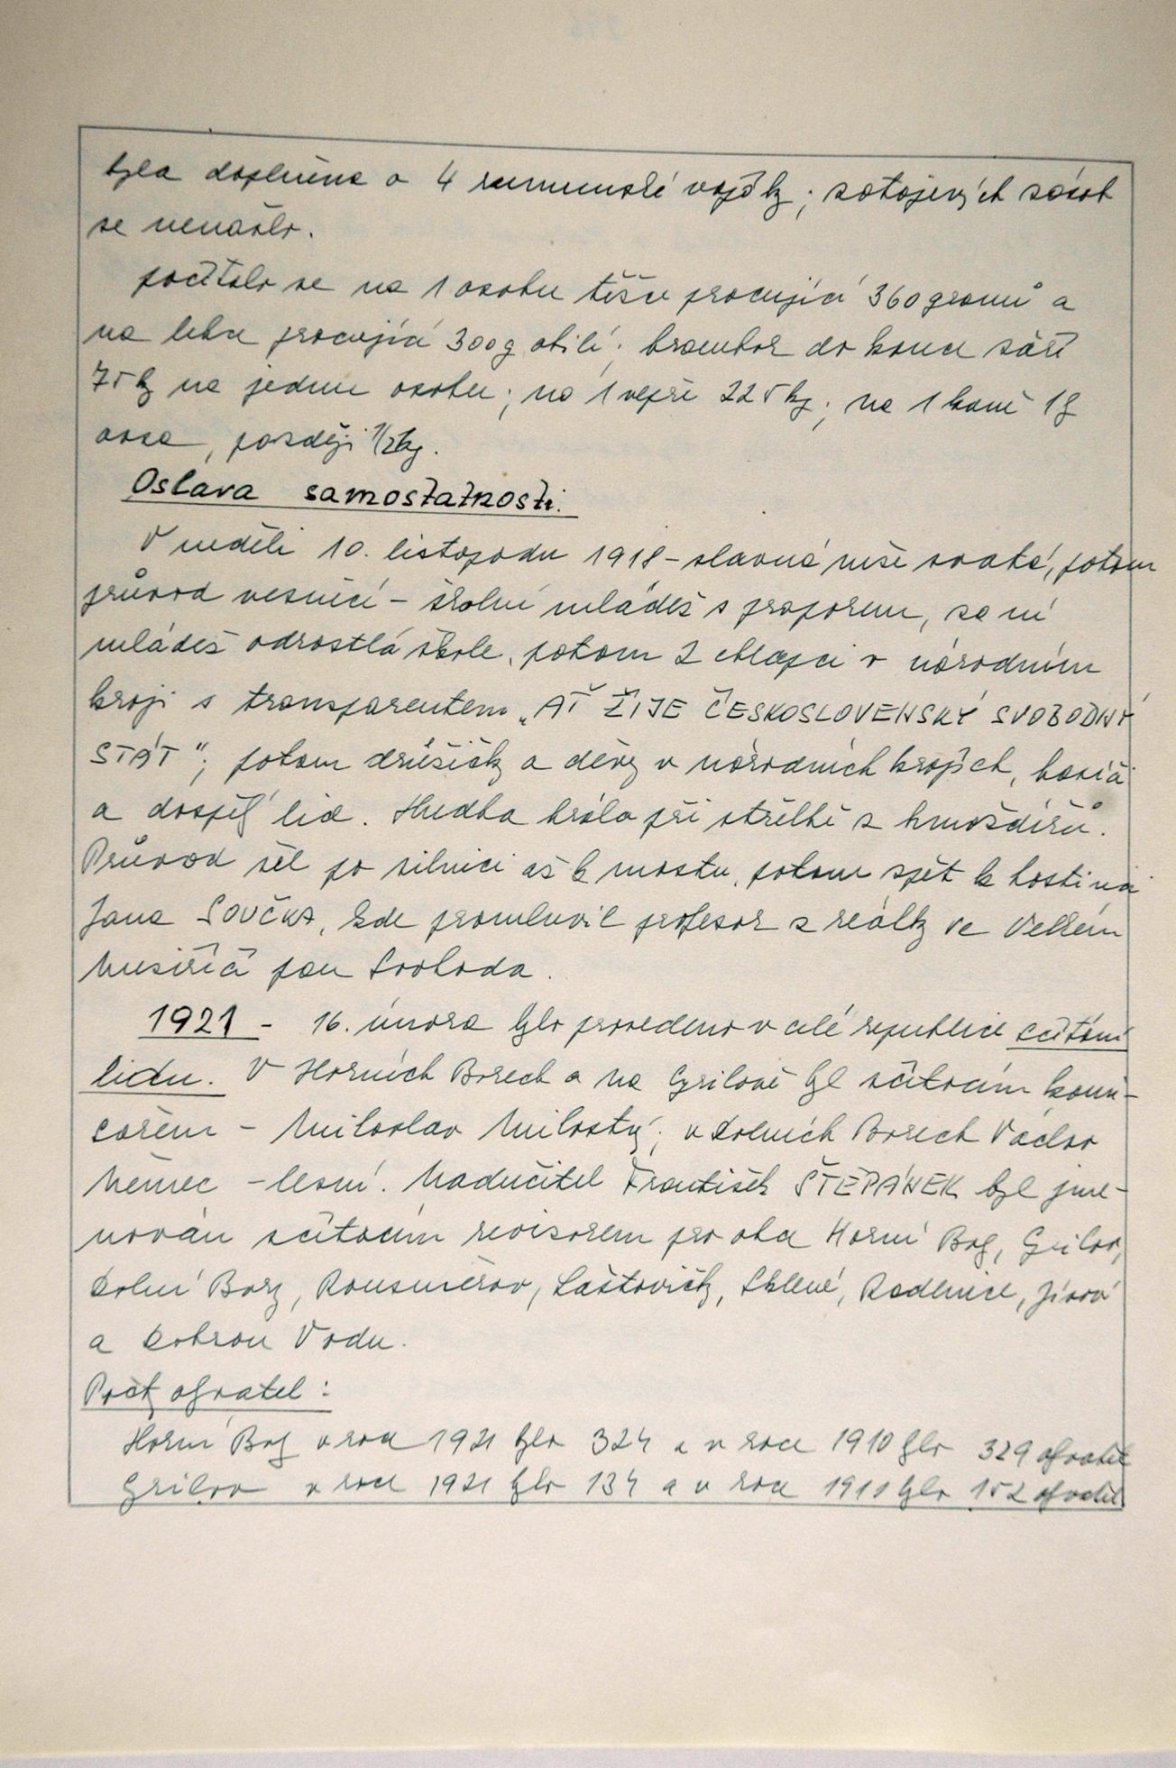 byla doplněna o 4 rumunské vojáky; zatajených zásob
se nenašlo.
počítalo se na 1 osobu těžce pracující 360 gramů a
na lehce pracující 300 g obilí; brambor do konce září
75 kg na jednu osobu; na 1 vepře 225 kg; na 1 koně 1 q
ovsa, později 1/2 kg.
Oslava samostatnosti.
V neděli 10. listopadu 1918 - slavná mše svatá, potom
průvod vesnicí - školní mládež s praporem, za ní
mládež odrostlá škole, potom 2 chlapci v národním
kroji s transparentem „AŤ ŽIJE ČESKOSLOVENSKÝ SVOBODNÝ
STÁT“; potom družičky a děvy v národních krojích, hasiči
a dospělý lid. Hudba hrála při střelbě z hmoždířů.
Průvod šel po silnici až k mostu, potom zpět k hostinci
Jana SOUČKA, kde promluvil profesor z reálky ve Velkém
Meziříčí pan Svoboda.
1921 - 16. února bylo provedeno v celé republice sčítání
lidu. V Horních Borech a na Cyrilově byl sčítacím komi-
sařem - Miloslav Milostný; v Dolních Borech Václav
Němec - lesní. Nadučitel František ŠTĚPÁNEK byl jme-
nován sčítacím revisorem pro obce Horní Bory, Cyrilov,
Dolní Bory, Rousměrov, Laštovičky, Sklené, Radenice, Jívoví
a Dobrou Vodu.
Počty obyvatel:
Horní Bory v roce 1921 bylo 324 a v roce 1910 bylo 329 obyvatel
Cyrilov v roce 1921 bylo 134 a v roce 1910 bylo 152 obyvatel